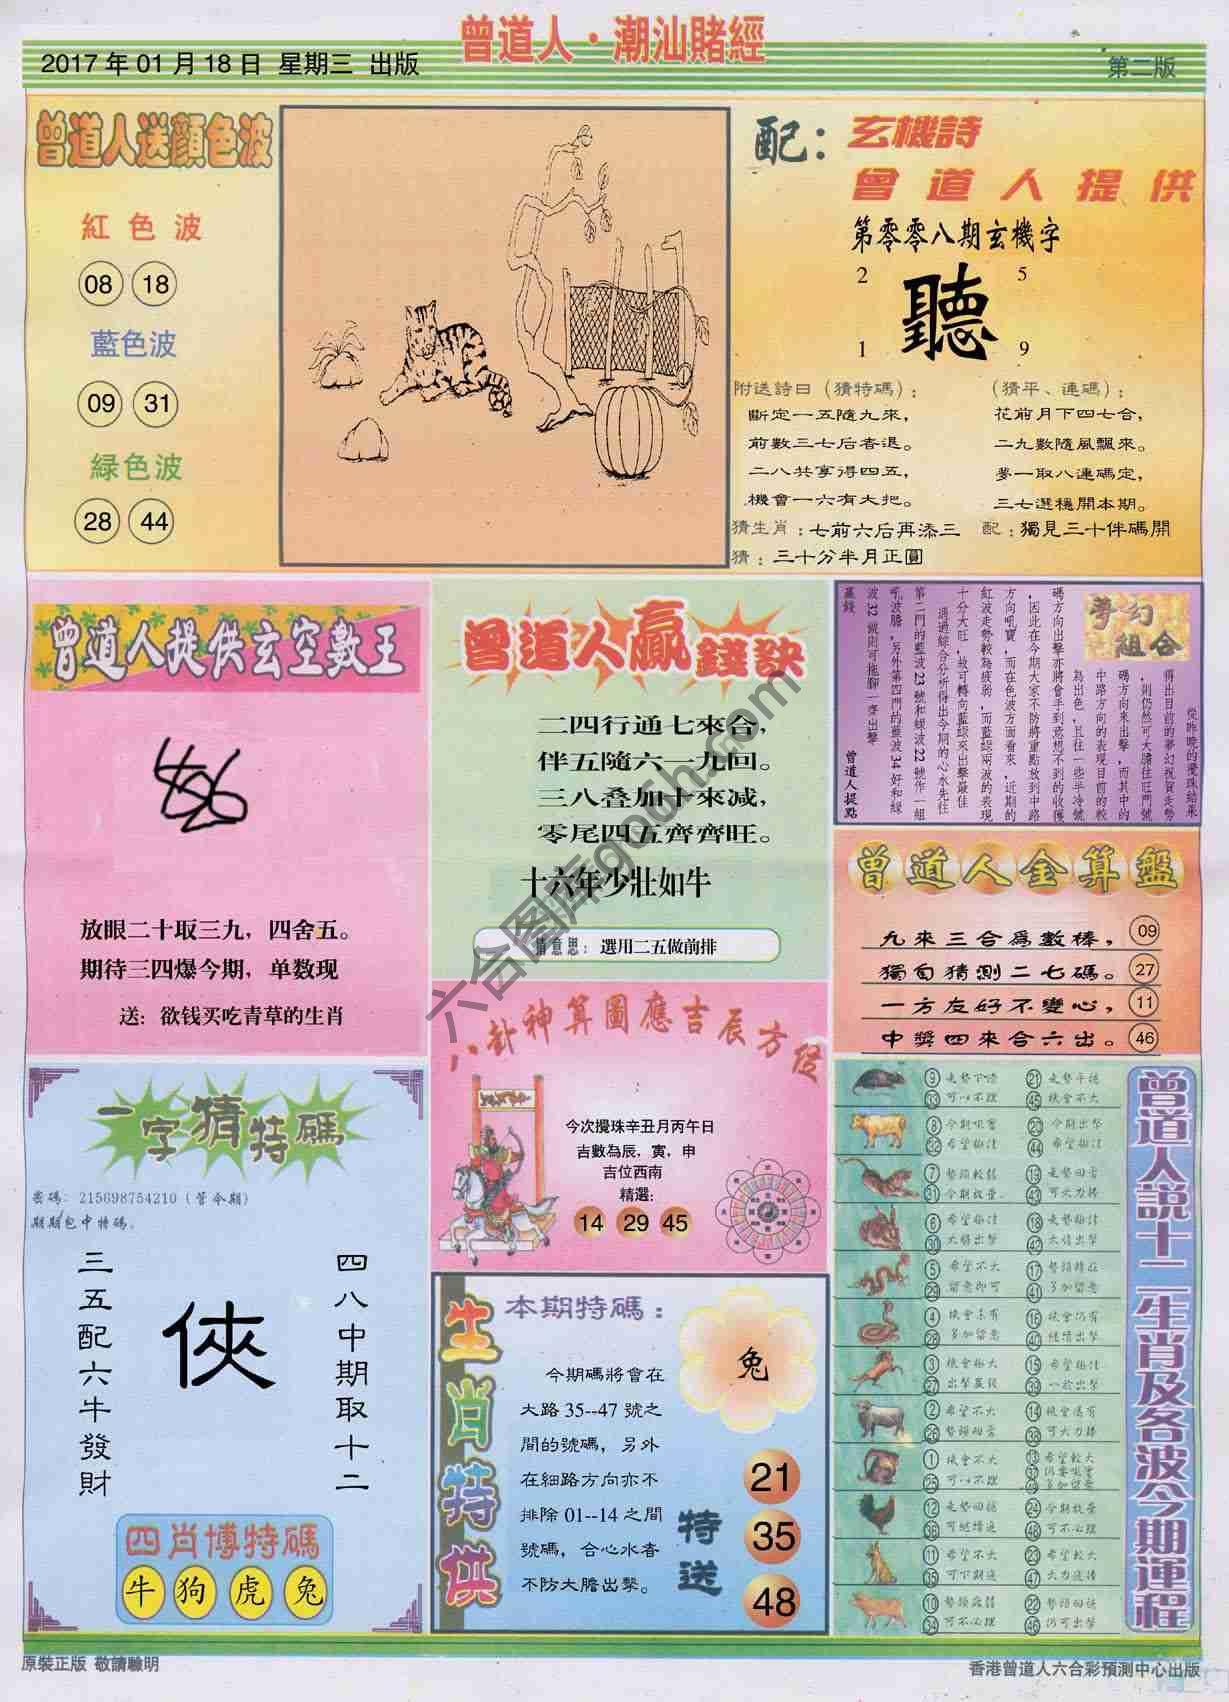 曾道人·潮汕賭經
2017年01月18日 星期三 出版
第二版
曾道人送顏色波
紅色波
08 18
藍色波
09 31
緑色波
28 44
配：玄機詩
曾道人提供
第零零八期玄機字
2 5
聽
1 9
附送詩曰（猜特碼）：
斷定一五隨九來，
前數三七后者退。
二八共享得四五，
機會一六有大把。
（猜平、連碼）：
花前月下四七合，
二九數隨風飄來。
夢一取八連碼定，
三七選穩開本期。
猜生肖：七前六后再添三
配：獨見三十伴碼開
猜：三十分半月正圓
曾道人提供玄空數王
放眼二十取三九，四舍五。
期待三四爆今期，单数现
送：欲钱买吃青草的生肖
曾道人贏錢訣
二四行通七來合，
伴五隨六一九回。
三八叠加十來减，
零尾四五齊齊旺。
十六年少壯如牛
猜意思：選用二五做前排
夢幻組合
從昨晚的攪珠結果
得出目前的夢幻祝賀走勢
，則仍然可大膽往旺門號
碼方向來出擊，而其中的
中路方向的表現目前的較
為出色，且往一些半冷號
碼方向出擊亦將會手到意想不到的收獲
，因此在今期大家不防將重點放到中路
方向吼寶，而在色波方面看來，近期的
紅波走勢較為疲弱，而藍緑兩波的表現
十分大旺，故可轉向藍緑來出擊最佳
，通過綜合分析得出今期的心水先往
第二門的藍波23號和緑波22號作一組
吼波膽，另外第四門的藍波34好和緑
波32做則可拖腳一齊出擊
贏錢
曾道人提點
曾道人金算盤
九來三合爲數棒， 09
獨旬猜測二七碼。 27
一方友好不變心， 11
中獎四來合六出。 46
八卦神算圖應吉辰方位
今次攪珠辛丑月丙午日
吉數為辰，寅，申
吉位西南
精選：
14 29 45
一字猜特碼
密碼：215698754210（管令期）
期期包中特碼。
四八中期取十二
俠
三五配六牛發財
四肖博特碼
牛 狗 虎 兔
生肖特供
本期特碼：
今期碼將會在
大路35--47號之
間的號碼，另外
在細路方向亦不
排除01--14之間
號碼，合心水者
不防大膽出擊。
兔
特送
21
35
48
曾道人説十二生肖及各波今期運程
原裝正版 敬請驗明
香港曾道人六合彩預測中心出版
六合图库good​h.com